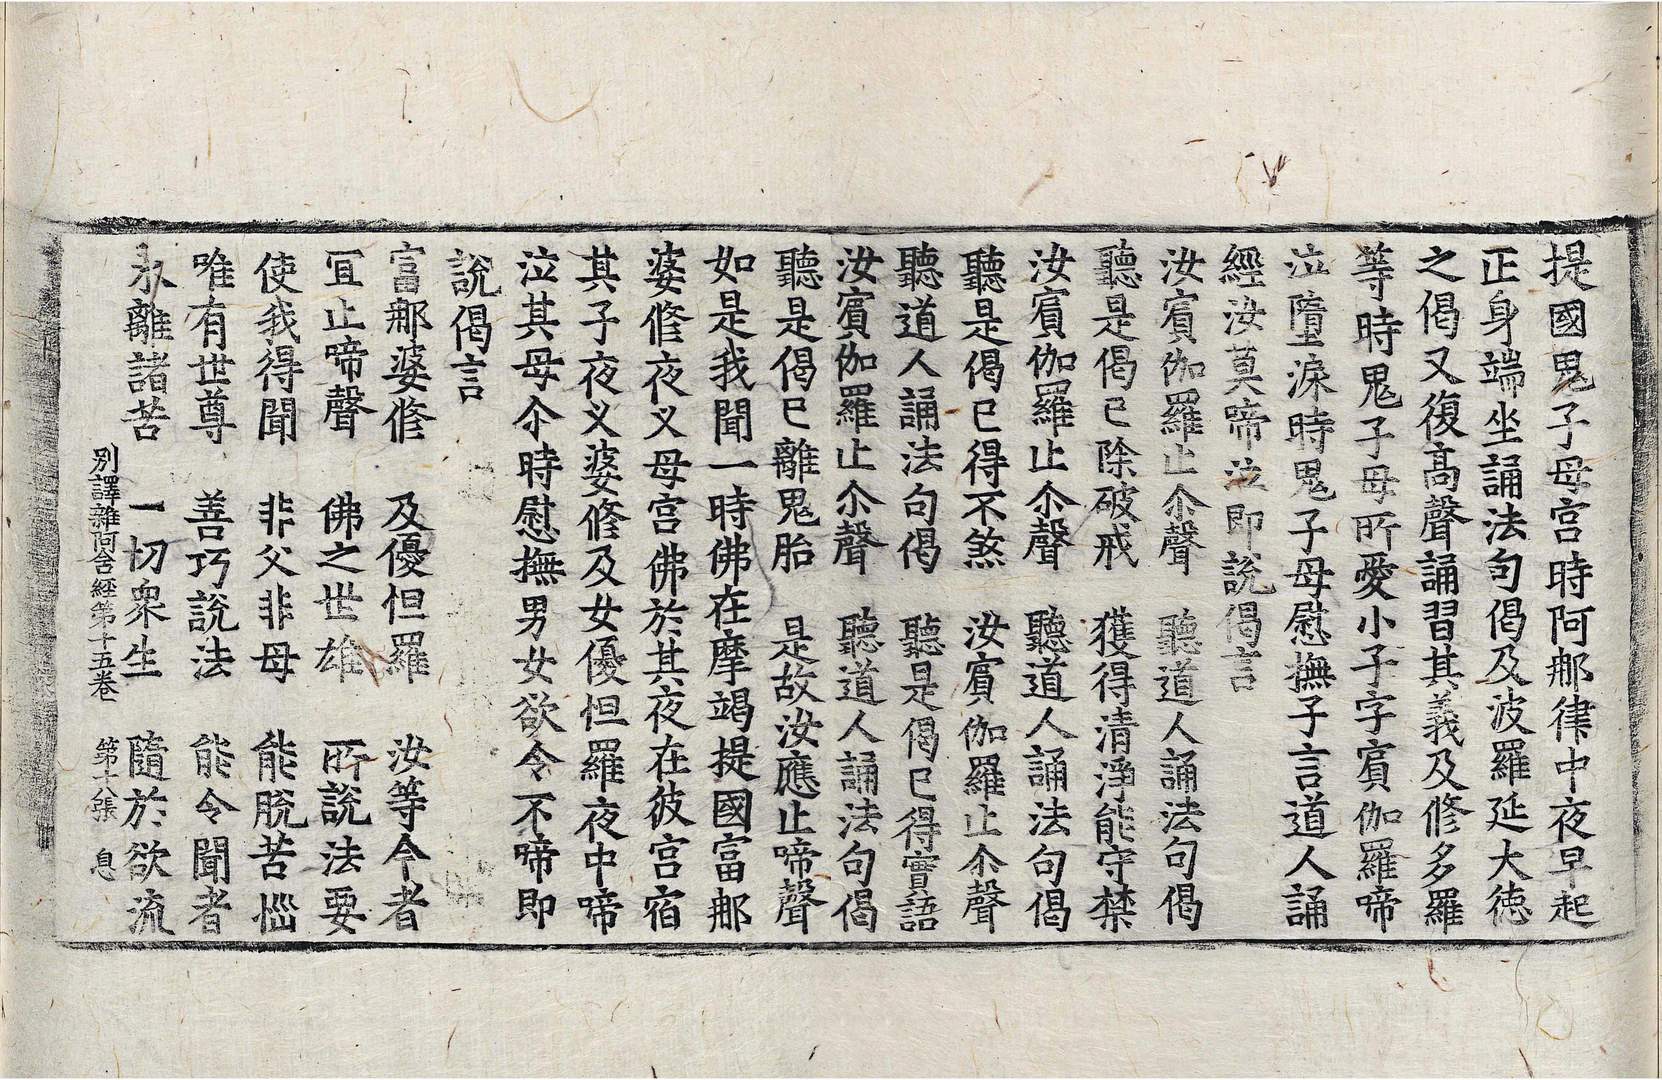 提國鬼子母宮時阿郍律中夜早起
正身端坐誦法句偈及波羅延大徳
之偈又復髙聲誦習其義及修多羅
等時鬼子母所愛小子字賔伽羅啼
泣墮淚時鬼子母慰撫子言道人誦
經汝莫啼泣即說偈言
汝賔伽羅止尒聲　聽道人誦法句偈
聽是偈已除破戒　獲得清淨能守禁
汝賔伽羅止尒聲　聽道人誦法句偈
聽是偈已得不煞　汝賔伽羅止尒聲
聽道人誦法句偈　聽是偈已得實語
汝賔伽羅止尒聲　聽道人誦法句偈
聽是偈已離鬼胎　是故汝應止啼聲
如是我聞一時佛在摩竭提國富郍
婆修夜叉母宮佛於其夜在彼宮宿
其子夜叉婆修及女優怛羅夜中啼
泣其母尒時慰撫男女欲令不啼即
說偈言
富郍婆修　及優怛羅　汝等今者
冝止啼聲　佛之世雄　所說法要
使我得聞　非父非母　能脫苦惱
唯有世尊　善巧說法　能令聞者
永離諸苦　一切衆生　隨於欲流
別譯雜阿含經第十五卷　第十八張　息